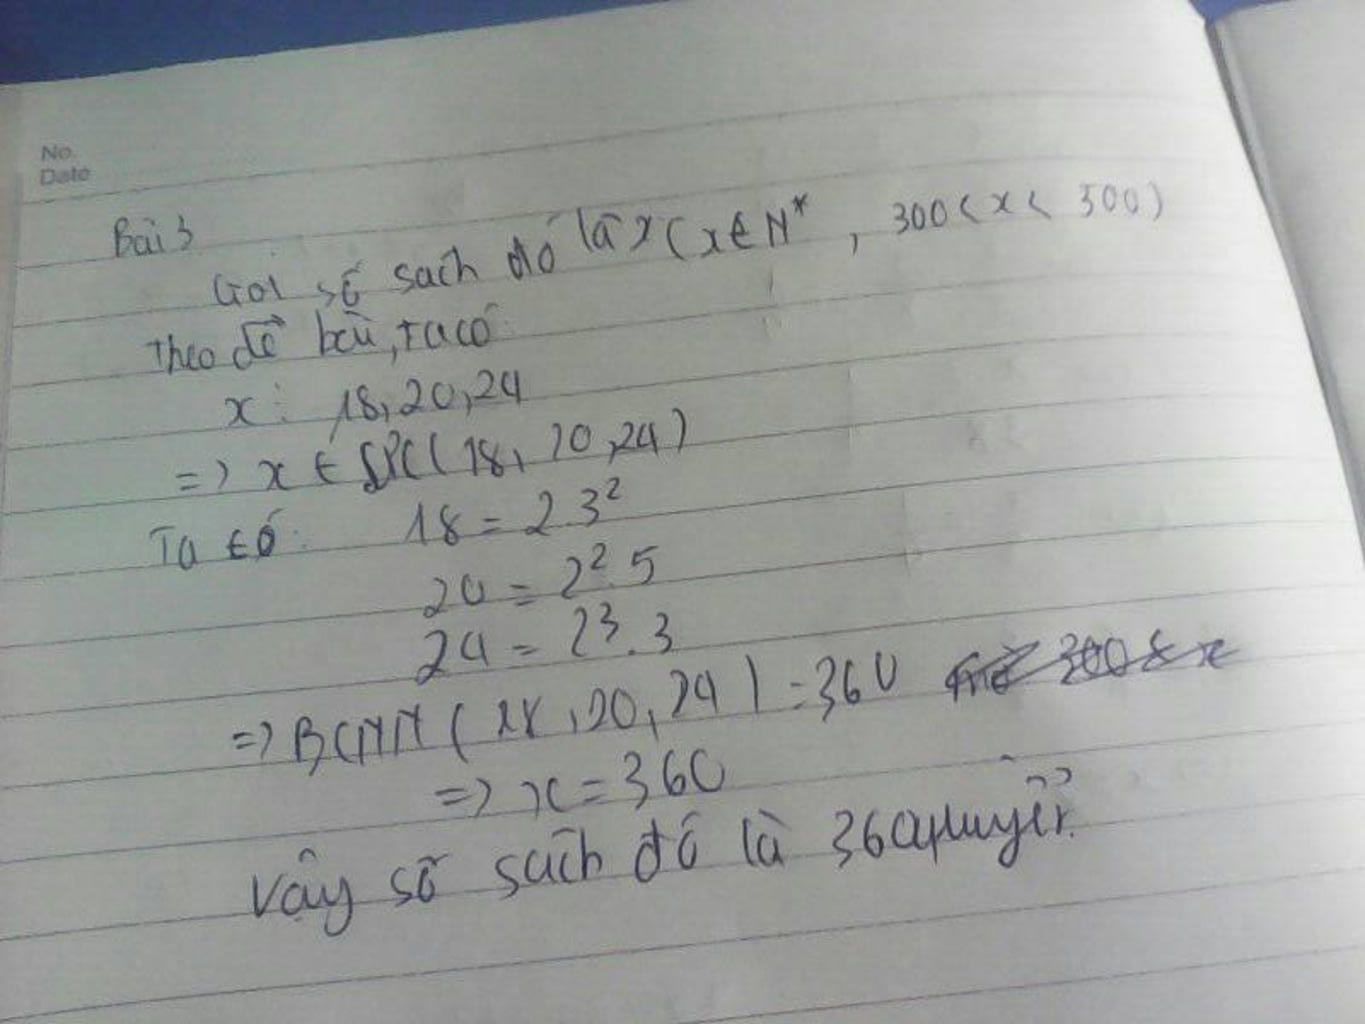 No.
Date
Bài 3
Gọi số sách đó là x (x ∈ N* , 300 < x < 500)
Theo đề bài, ta có
x ⋮ 18, 20, 24
=> x ∈ BC(18, 20, 24)
Ta có: 18 = 2.3²
20 = 2².5
24 = 2³.3
=> BCNN (18, 20, 24) = 360
=> x = 360
Vậy số sách đó là 360 quyển.